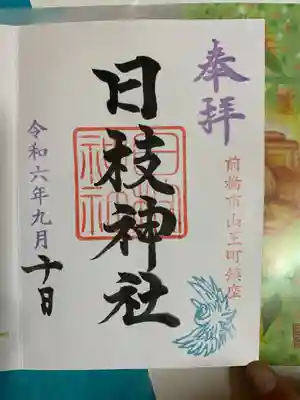 奉拝
前橋市山王町鎮座
日枝神社
日枝神社
令和六年九月十日